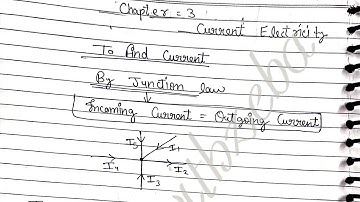 Chapter = 3
Current Electricity
To find Current
By Junction law
Incoming Current = Outgoing Current
I5 I1
I4 I2
I3